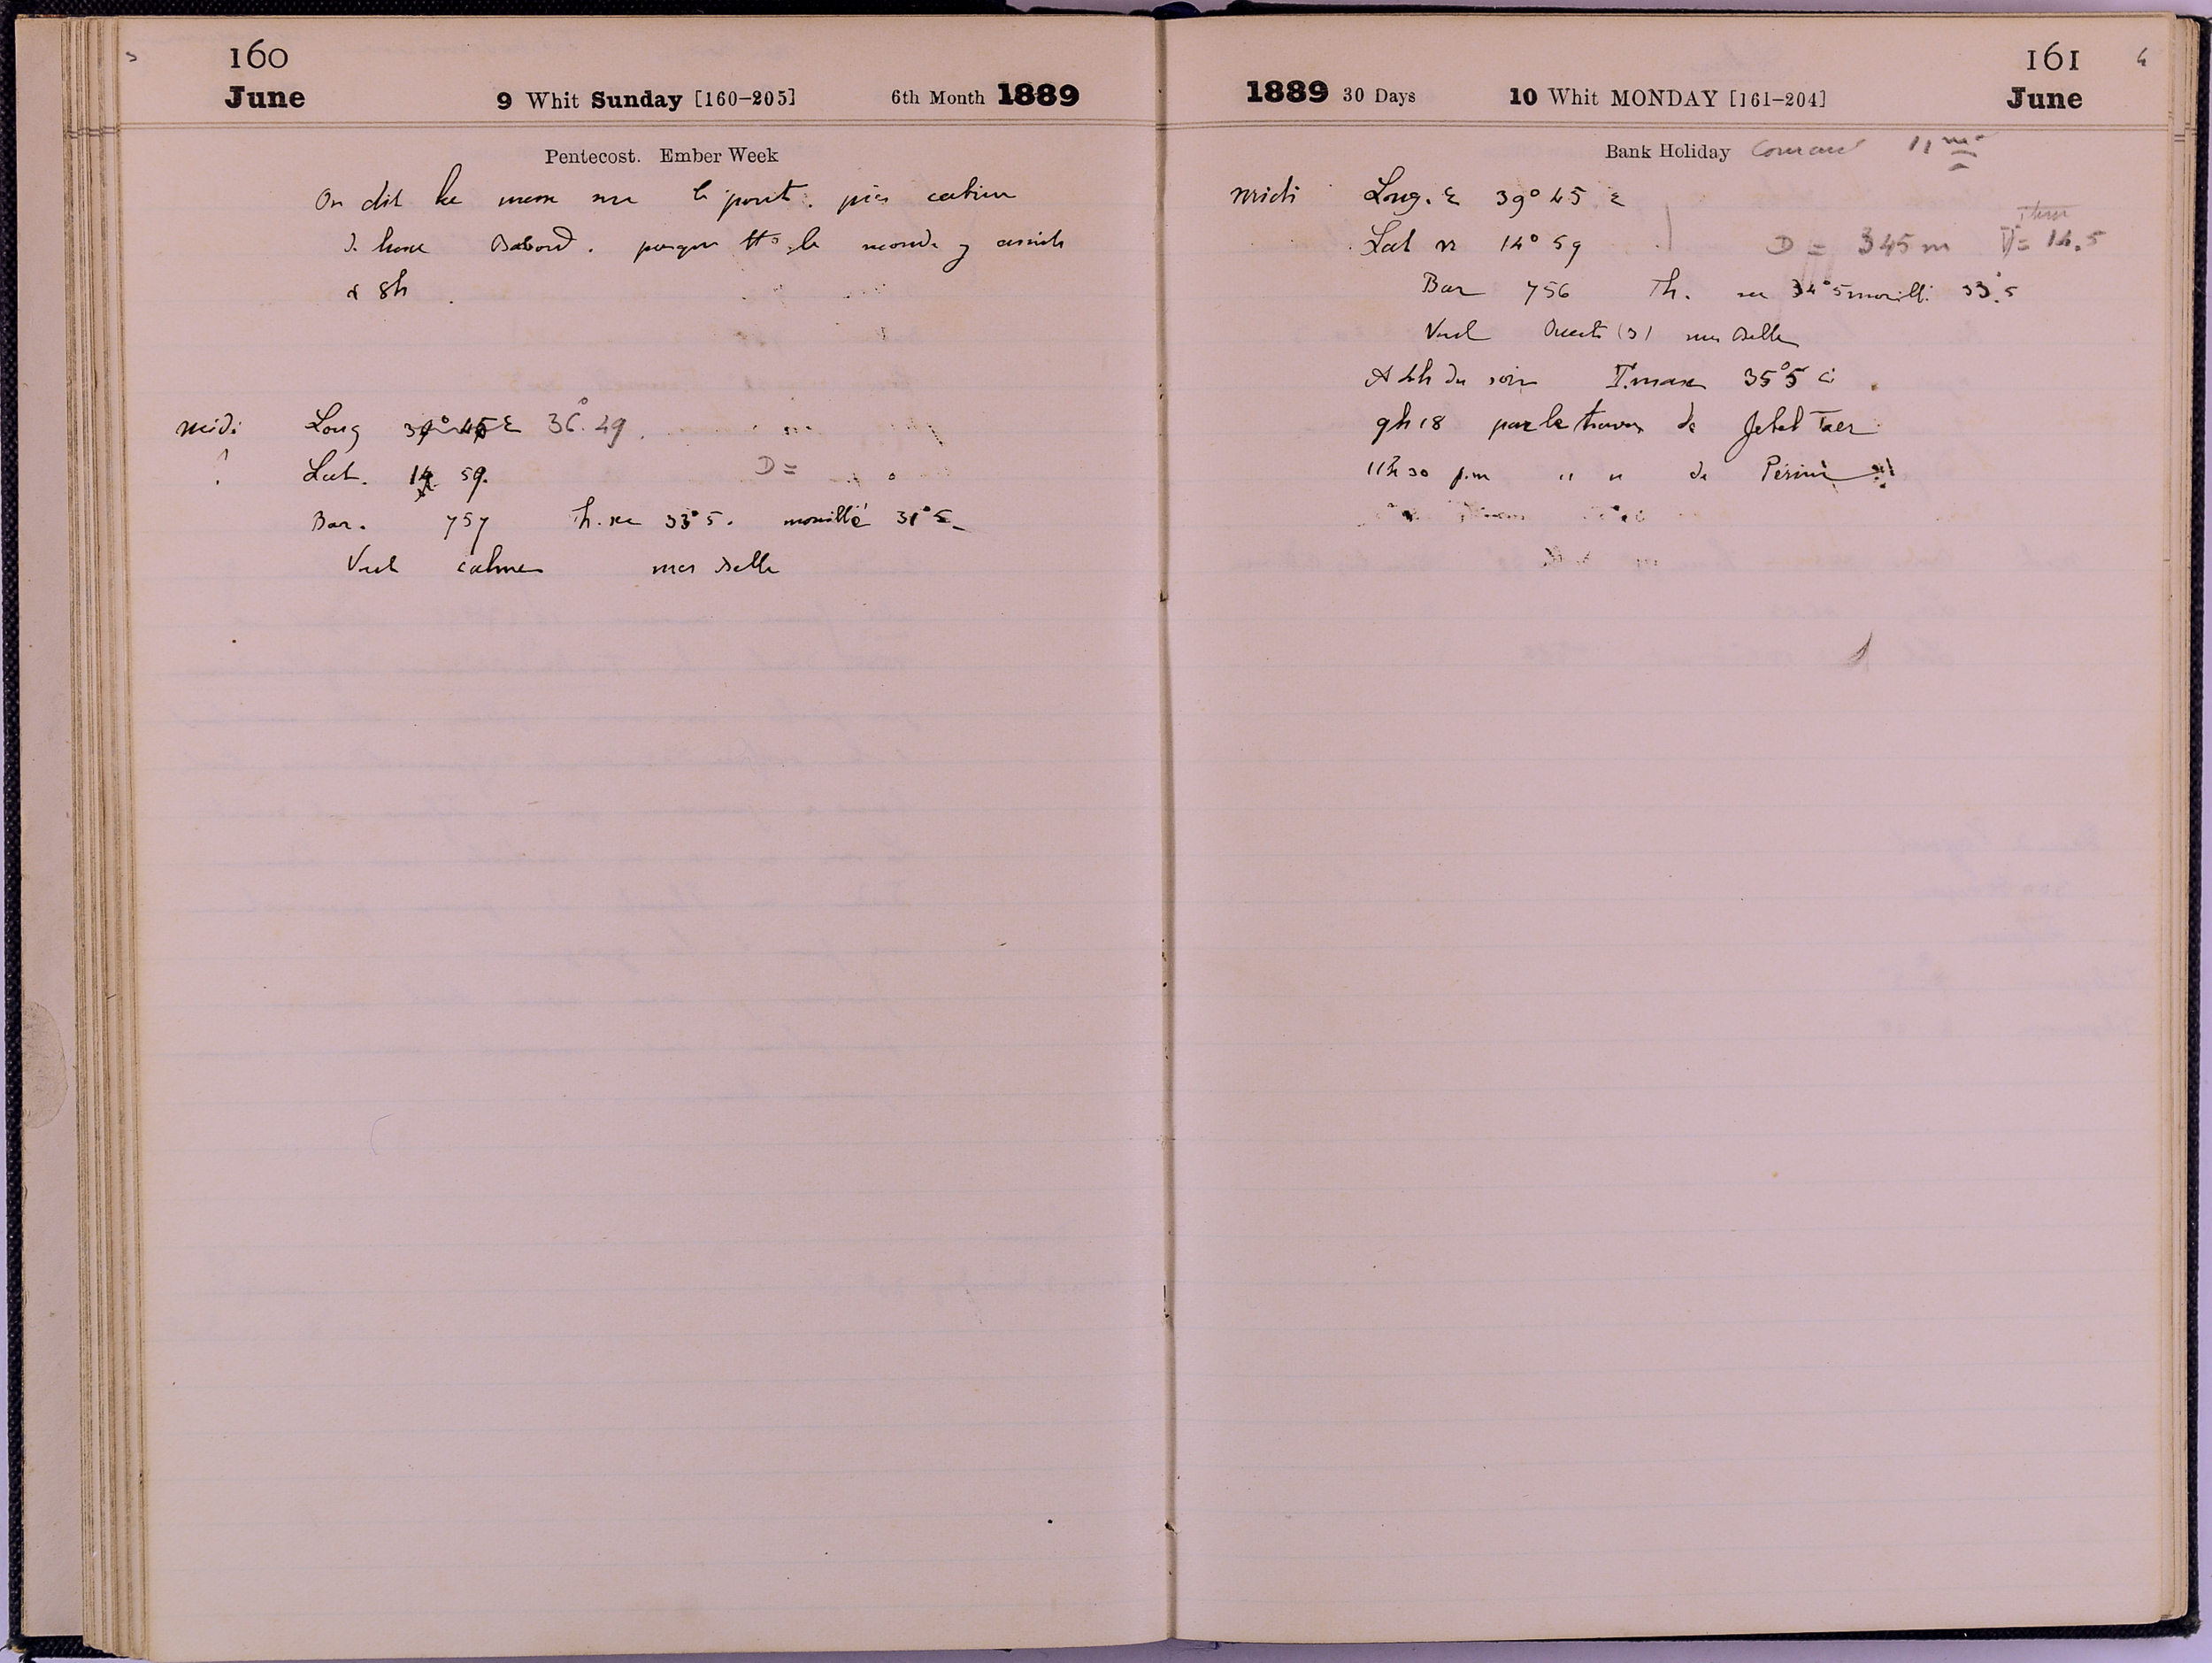 160
June
9 Whit Sunday [160-205]
6th Month 1889
Pentecost. Ember Week
On dit la messe sur le pont. près cabine
de luxe Babord. presque tts le monde y assiste
à 8h.
midi Long 39° 45 E 36°. 49.
? Lat. 14 59. D =
Bar. 757 Th. sec 33°5. mouillé 31°5
Vent calme mer belle
1889 30 Days
10 Whit MONDAY [161-204]
161
June
Bank Holiday Courant 11 m
midi Long. E 39° 45 E
Lat N 14° 59 D = 345 m V = 14.5
Bar 756 Th. sec 34°5 mouillé 33°.5
Vent Ouest (3) mer belle
A 4h du soir T. max 35°5 C
9h18 par le travers de Jebel Taer
11h30 p.m " " de Périm !!